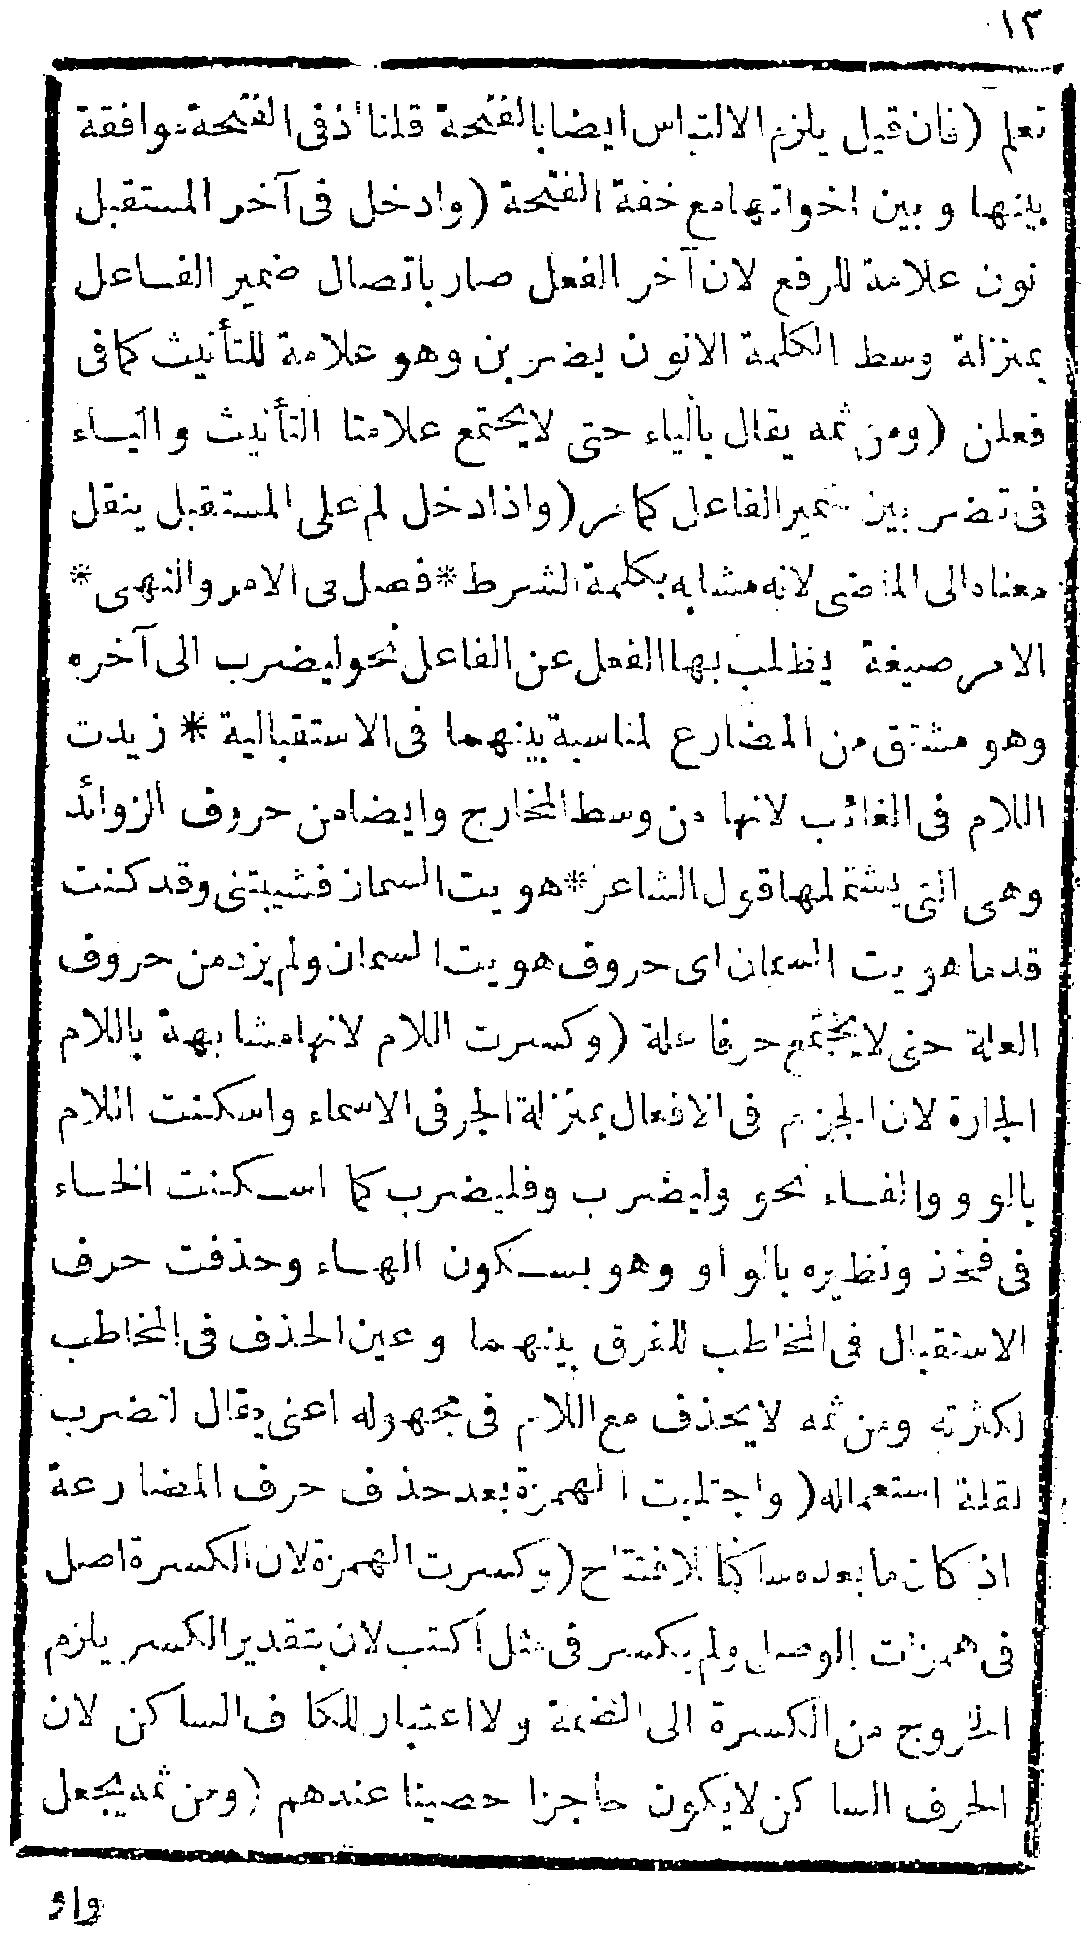 ١٣
تعلم (فان قيل يلزم الالتباس ايضا بالفتحة قلنا اذ فى الفتحة موافقة
بينها و بين اخواتها مع خفة الفتحة (وادخل فى آخر المستقبل
نون علامة للرفع لان آخر الفعل صار باتصال ضمير الفاعل
بمنزلة وسط الكلمة الا نون يضر بن وهو علامة للتأنيث كما فى
فعلن (ومن ثمه يقال بالياء حتى لا يجتمع علامتا التأنيث والياء
فى تضر بين ضمير الفاعل كما مر (واذا دخل لم على المستقبل ينقل
معناه الى الماضى لانه مشابه بكلمة الشرط * فصل فى الامر والنهى *
الامر صيغة يطلب بها الفعل عن الفاعل نحو ليضرب الى آخره
وهو مشتق من المضارع لمناسبة بينهما فى الاستقبالية * زيدت
اللام فى الغائب لانها من وسط المخارج وايضا من حروف الزوائد
وهى التى يشتملها قول الشاعر * هويت السمان فشيبتنى وقد كنت
قدما هويت السمان اى حروف هويت السمان ولم يزد من حروف
العلة حتى لا يجتمع حرفا علة (وكسرت اللام لانها مشابهة باللام
الجارة لان الجزم فى الافعال بمنزلة الجر فى الاسماء واسكنت اللام
بالو و والفاء نحو وليضرب وفليضرب كما اسكنت الخاء
فى فخذ ونظيره بالواو وهو بسكون الهاء وحذفت حرف
الاستقبال فى المخاطب للفرق بينهما وعين الحذف فى المخاطب
لكثرته ومن ثمه لا يحذف مع اللام فى مجهوله اعنى يقال لتضرب
لقلة استعماله (واجتلبت الهمزة بعد حذف حرف المضارعة
اذ كان ما بعده ساكنا للافتتاح (وكسرت الهمزة لان الكسرة اصل
فى همزات الوصل ولم يكسر فى مثل اكتب لان بتقدير الكسر يلزم
الخروج من الكسرة الى الضمة ولا اعتبار للكاف الساكن لان
الحرف الساكن لا يكون حاجزا حصينا عندهم (ومن ثمه يجعل
واو